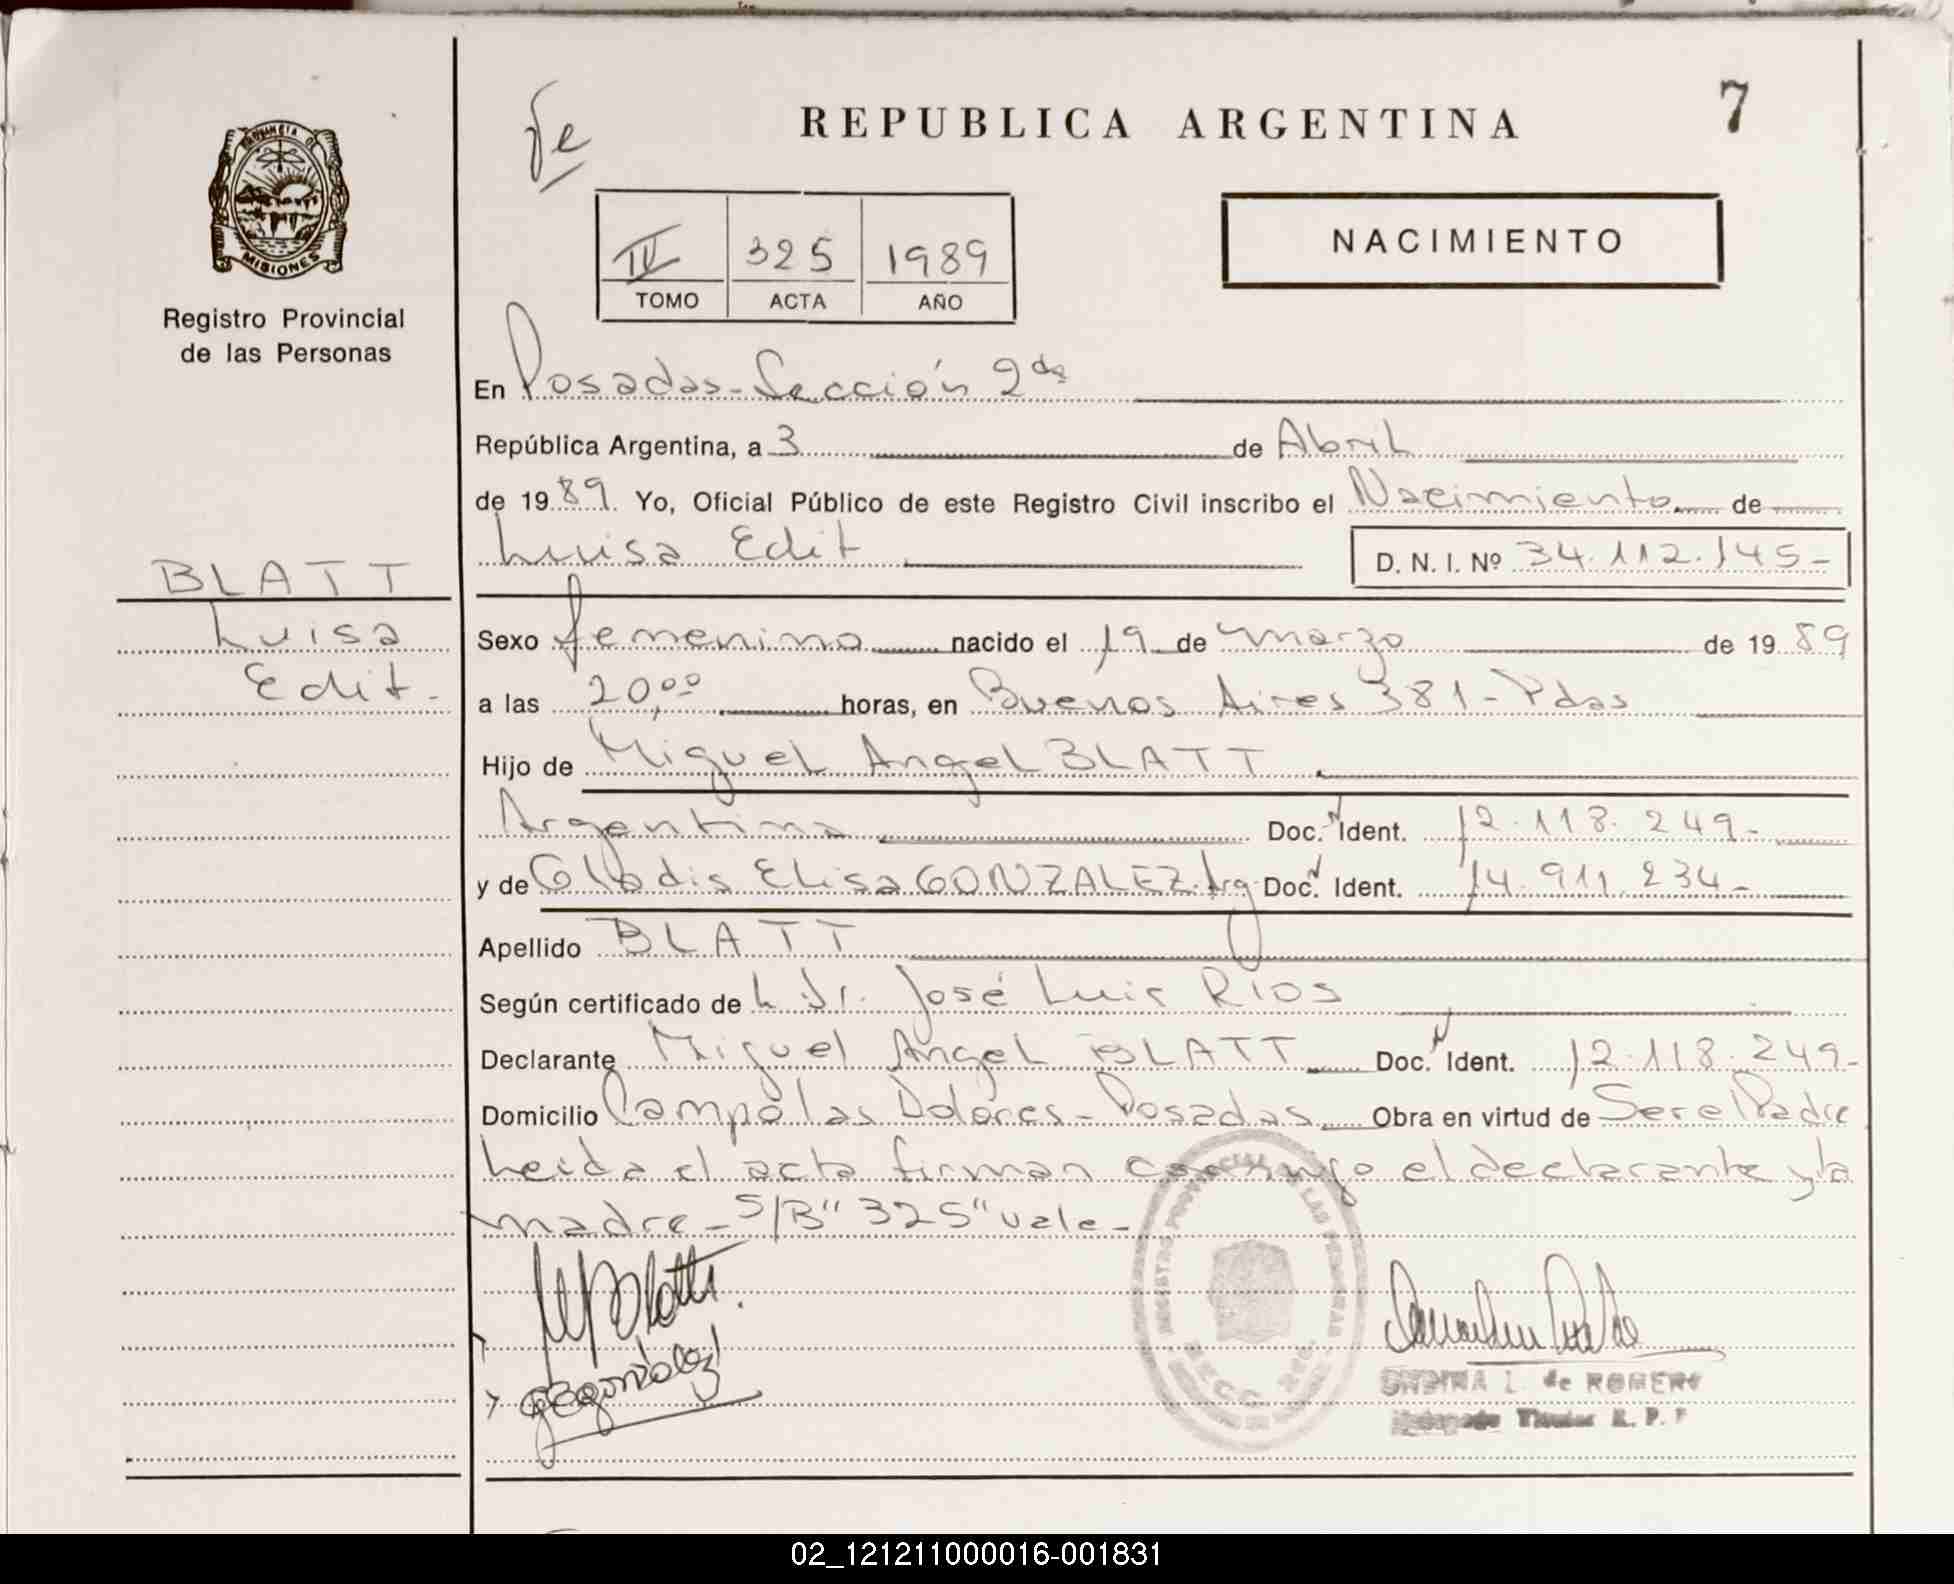 REPUBLICA ARGENTINA
7
Fe
PROVINCIA DE
MISIONES
Registro Provincial
de las Personas
IV 325 1989
TOMO ACTA AÑO
NACIMIENTO
En Posadas - Sección 2da
República Argentina, a 3 de Abril
de 1989. Yo, Oficial Público de este Registro Civil inscribo el Nacimiento de
Luisa Edit
D. N. I. Nº 34.112.145-
BLATT
Luisa
Edit.-
Sexo femenino nacido el 19 de marzo de 1989
a las 20,00 horas, en Buenos Aires 381 - Pdas
Hijo de Miguel Angel BLATT
Argentina Doc. N Ident. 12.118.249-
y de Gladis Elisa GONZALEZ. Arg Doc. N Ident. 14.911.234-
Apellido BLATT
Según certificado de L. Dr. José Luis RIOS
Declarante Miguel Angel BLATT Doc. N Ident. 12.118.249-
Domicilio Campo las Dolores - Posadas Obra en virtud de Ser el Padre
Leida el acta firman conmigo el declarante y la
madre - S/B "325" vale -
MABlatt.
GEGonzalez
REGISTRO PROVINCIAL DE LAS PERSONAS
ONDINA L. de ROMERO
Titular R. P. P
02_121211000016-001831